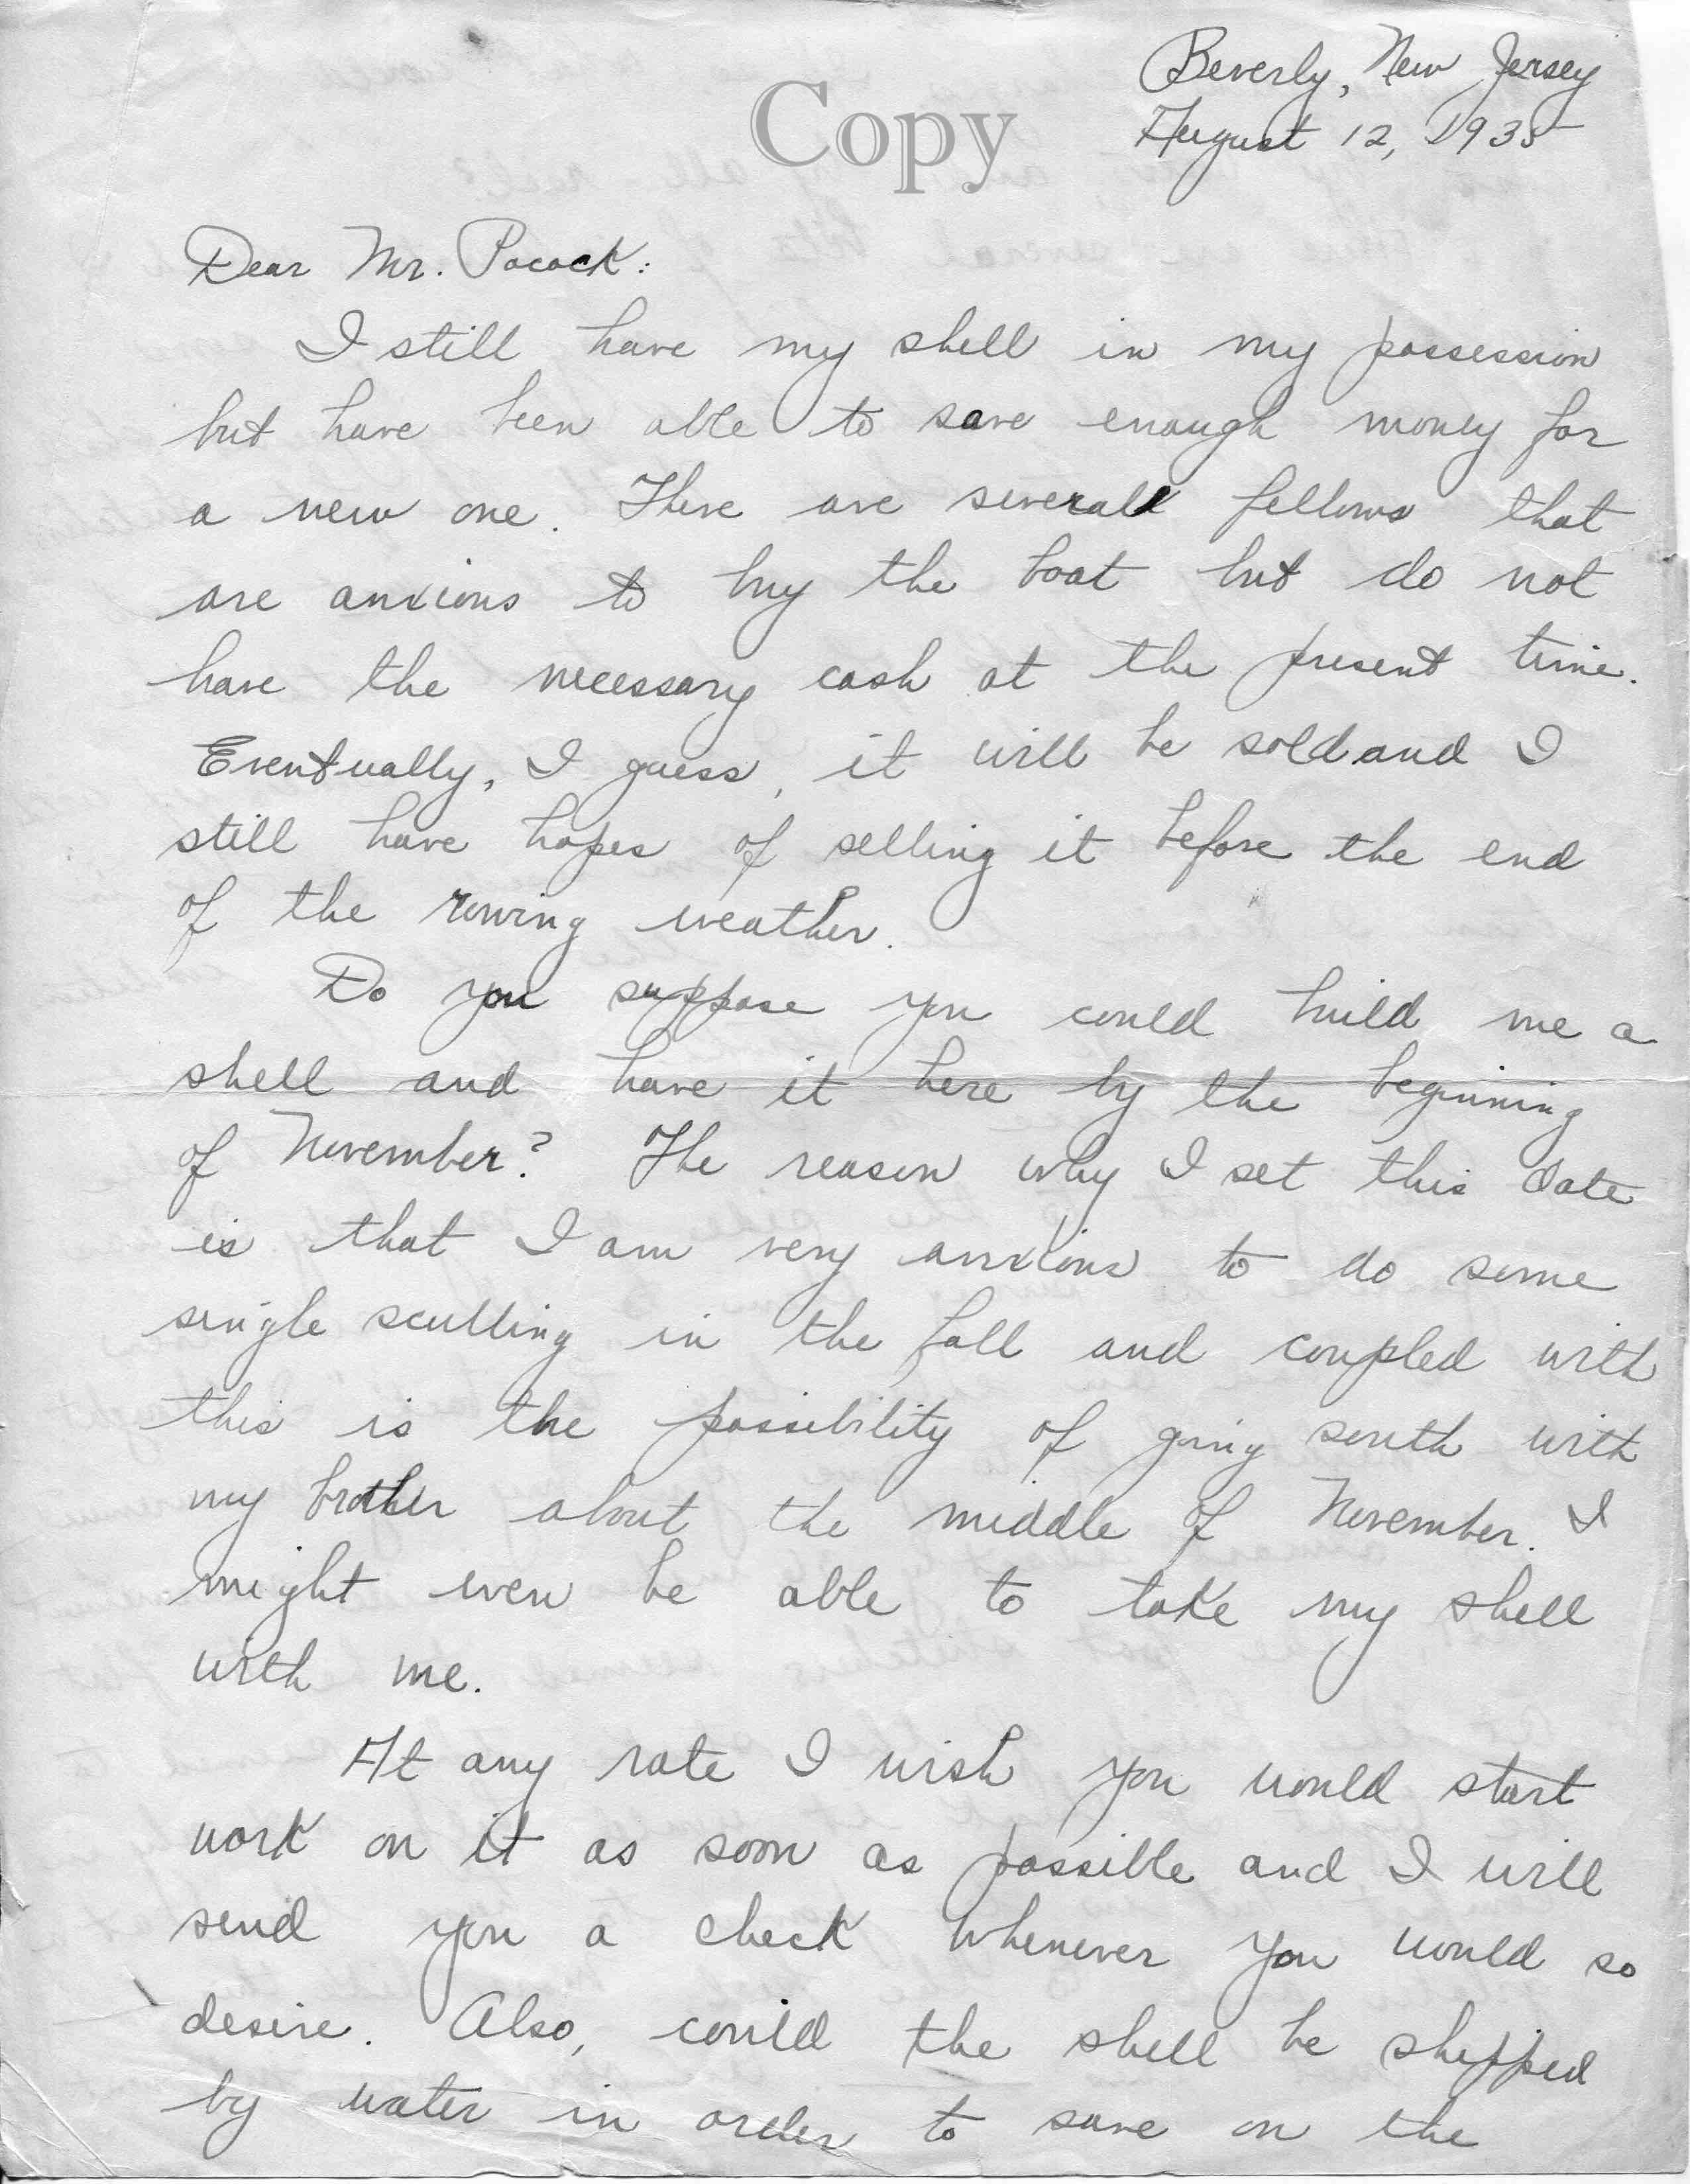 Copy
Beverly, New Jersey
August 12, 1935
Dear Mr. Pocock:
I still have my shell in my possession
but have been able to save enough money for
a new one. There are severall fellows that
are anxious to buy the boat but do not
have the necessary cash at the present time.
Eventually, I guess, it will be sold and I
still have hopes of selling it before the end
of the rowing weather.
Do you suppose you could build me a
shell and have it here by the beginning
of November? The reason why I set this date
is that I am very anxious to do some
single sculling in the fall and coupled with
this is the possibility of going south with
my brother about the middle of November. I
might even be able to take my shell
with me.
At any rate I wish you would start
work on it as soon as possible and I will
send you a check whenever you would so
desire. Also, could the shell be shipped
by water in order to save on the